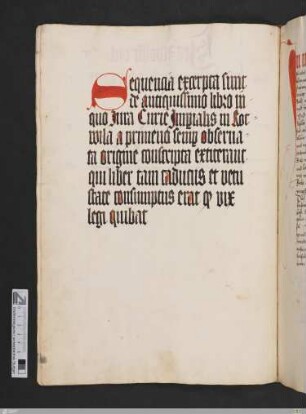 Sequencia excerpta sunt
de antiquissimo libro in
quo Jura Curie Jmpialis in Rot
wila a primeua semp obserua
ta origine conscripta extiterant
qui liber tam caducus et vetu
state consumptus erat q vix
legi quibat